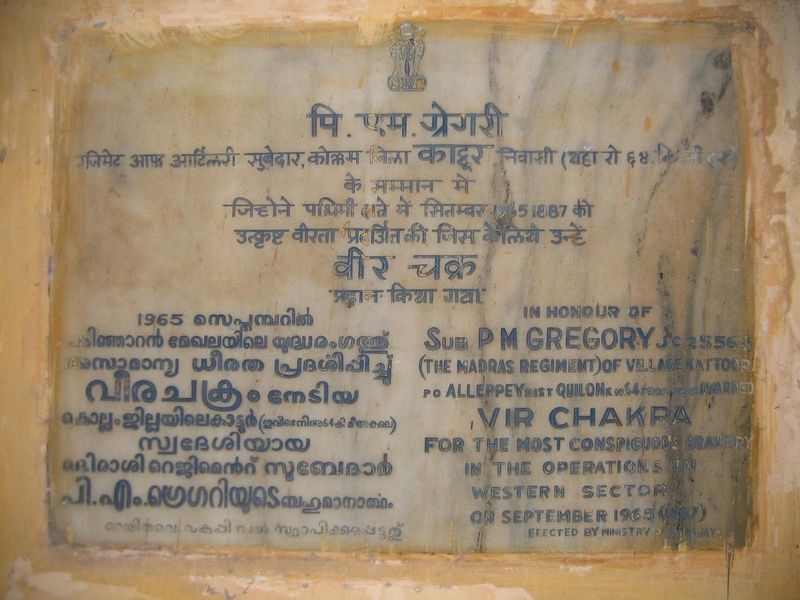 पि. एम. ग्रेगरी
आफ आर्टिलरी सुबेदार, कोल्लम जिला काट्टूर निवासी (यहाँ से ६४
के सम्मान में
जिन्होने पश्चिमी क्षेत्र में सितम्बर 1965 1887 को
उत्कृष्ट वीरता प्रदर्शित की जिस के लिये उन्हें
वीर चक्र
प्रदान किया गया
1965 സെപ്തംബറിൽ
പടിഞ്ഞാറൻ മേഖലയിലെ യുദ്ധരംഗത്ത്
അസാമാന്യ ധീരത പ്രദർശിപ്പിച്ച്
വീരചക്രം നേടിയ
കൊല്ലം ജില്ലയിലെ കാട്ടൂർ (ഇവിടെനിന്നു 64 കി.മീ അകലെ)
സ്വദേശിയായ
മദിരാശി റെജിമെൻറ് സുബേദാർ
പി.എം.ഗ്രെഗറിയുടെ ബഹുമാനാർത്ഥം
റെയിൽവെ വകുപ്പിനാൽ സ്ഥാപിക്കപ്പെട്ടത്
IN HONOUR OF
SUB P M GREGORY JC 25564
(THE MADRAS REGIMENT) OF VILLAGE KATTOOR
PO ALLEPPEY DIST QUILON 64 AWARDED
VIR CHAKRA
FOR THE MOST CONSPICUOUS BRAVERY
IN THE OPERATIONS IN
WESTERN SECTOR
ON SEPTEMBER 1965 (1887)
ERECTED BY MINISTRY OF RAILWAYS